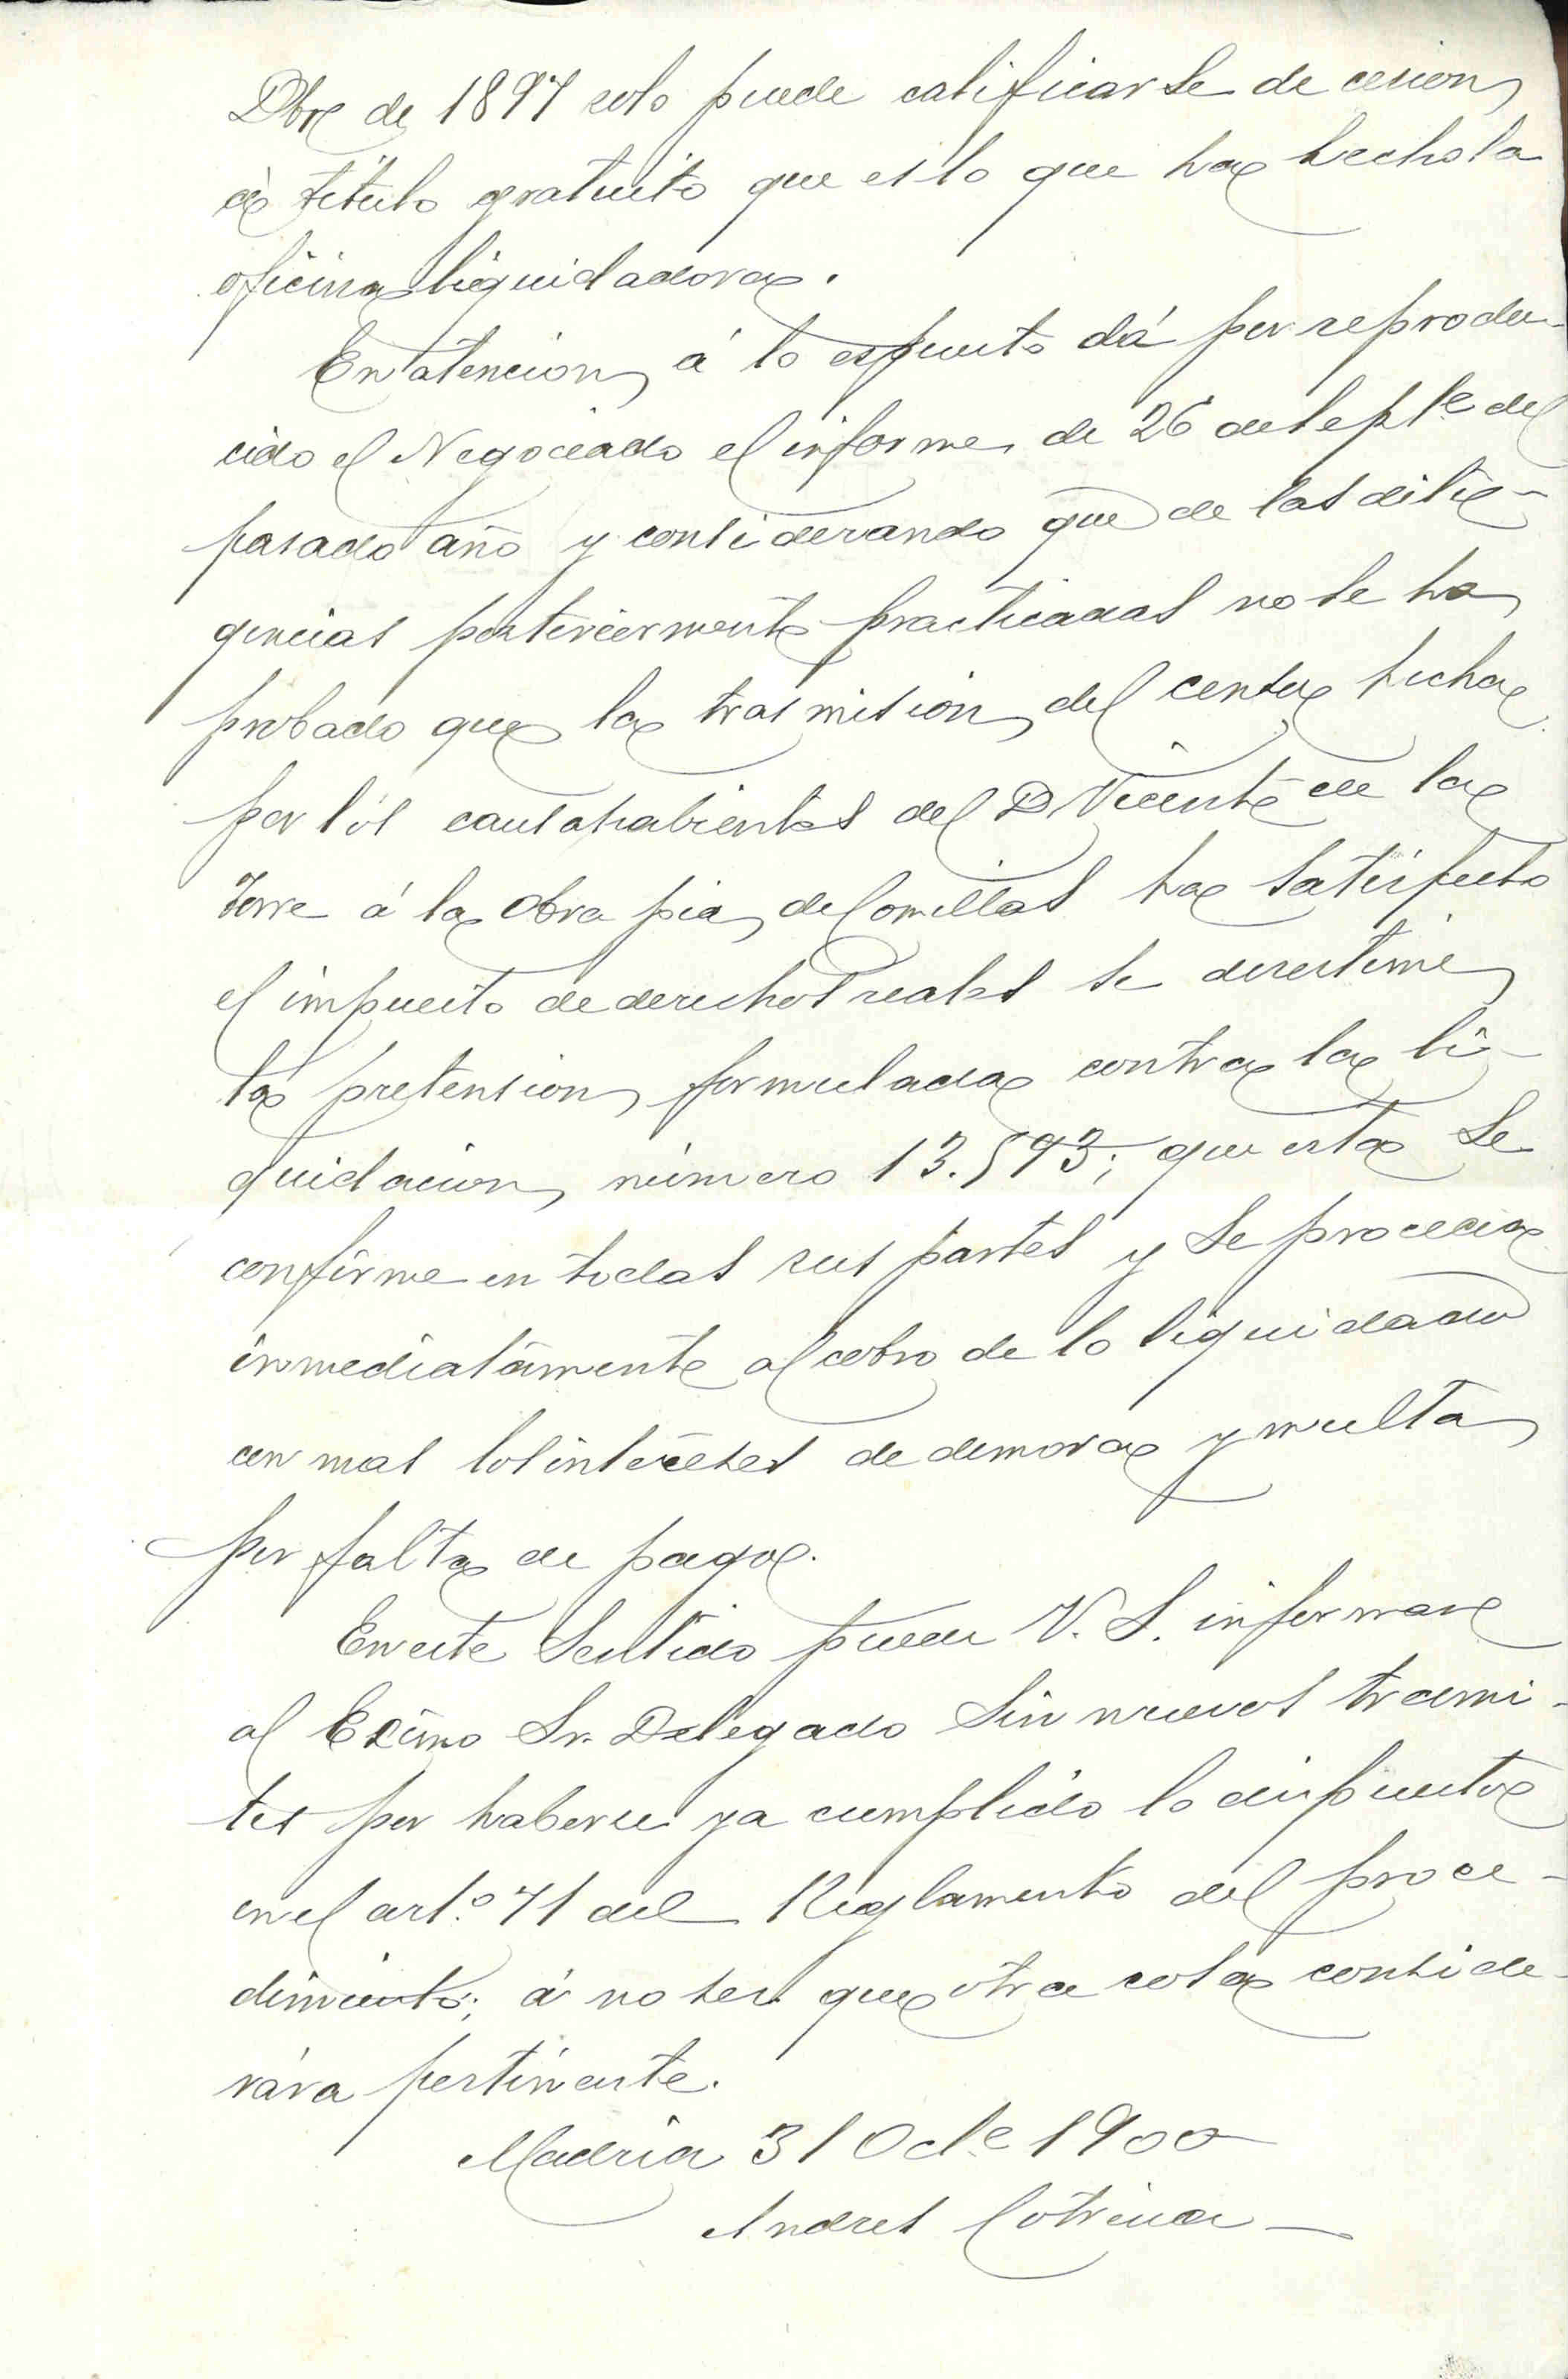 Dbre de 1897 solo puede calificarse de cesion
á título gratuito que es lo que ha hecho la
oficina liquidadora.
En atencion á lo espuesto dá por reprodu-
cido el Negociado el informe de 26 de Septe del
pasado año y considerando que de las dili-
gencias posteriormente practicadas no se ha
probado que la trasmision del censo hecha
por los causahabientes del D Vicente de la
Torre á la Obra pia de Comillas ha satisfecho
el impuesto de derechos reales se desestime
la pretension formulada contra la li-
quidacion número 13.593; que esta se
confirme en todas sus partes y se proceda
inmediatamente al cobro de lo liquidado
con mas los intereses de demora y multa
por falta de pago.
En este sentido puede V. S. informar
al Excmo Sr. Delegado sin nuevos trami-
tes por haberse ya cumplido lo dispuesto
en el art.º 71 del Reglamento del proce-
dimiento; á no ser que otra cosa conside-
rára pertinente.
Madrid 31 Octe 1900
Andres Cotrina